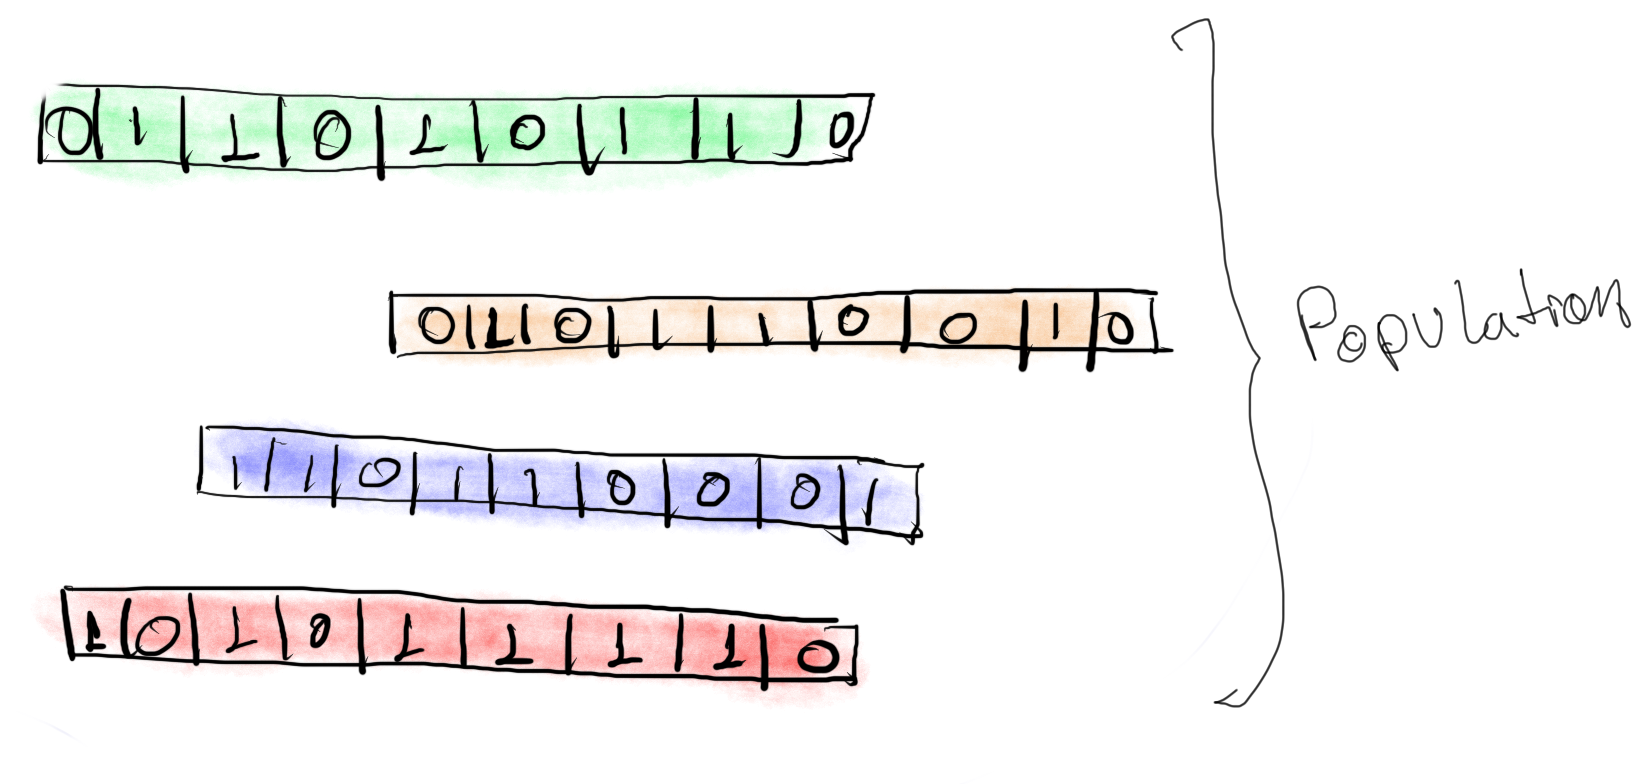 0 1 1 0 1 0 1 1 0
0 1 0 1 1 0 0 1 0
1 1 0 1 1 0 0 0 1
1 0 1 0 1 1 1 1 0
Population